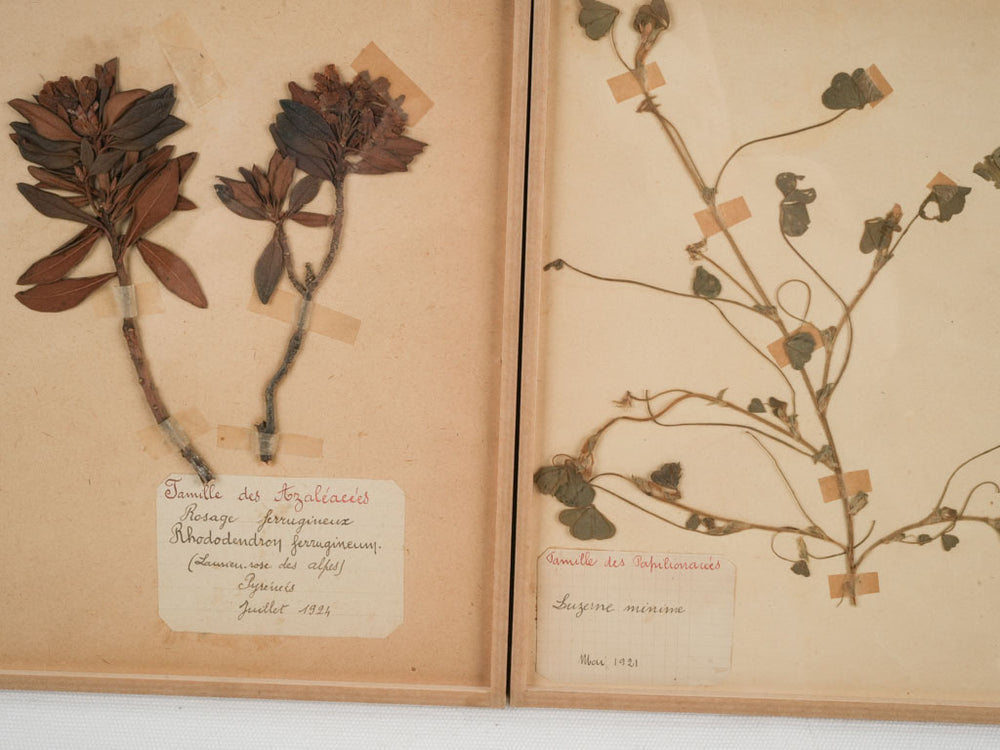 Famille des Azaléacées
Rosage ferrugineux
Rhododendron ferrugineum.
(Laurier.rose des alpes)
Pyrénées
Juillet 1924
Famille des Papilionacées
Luzerne minime
Mai 1921